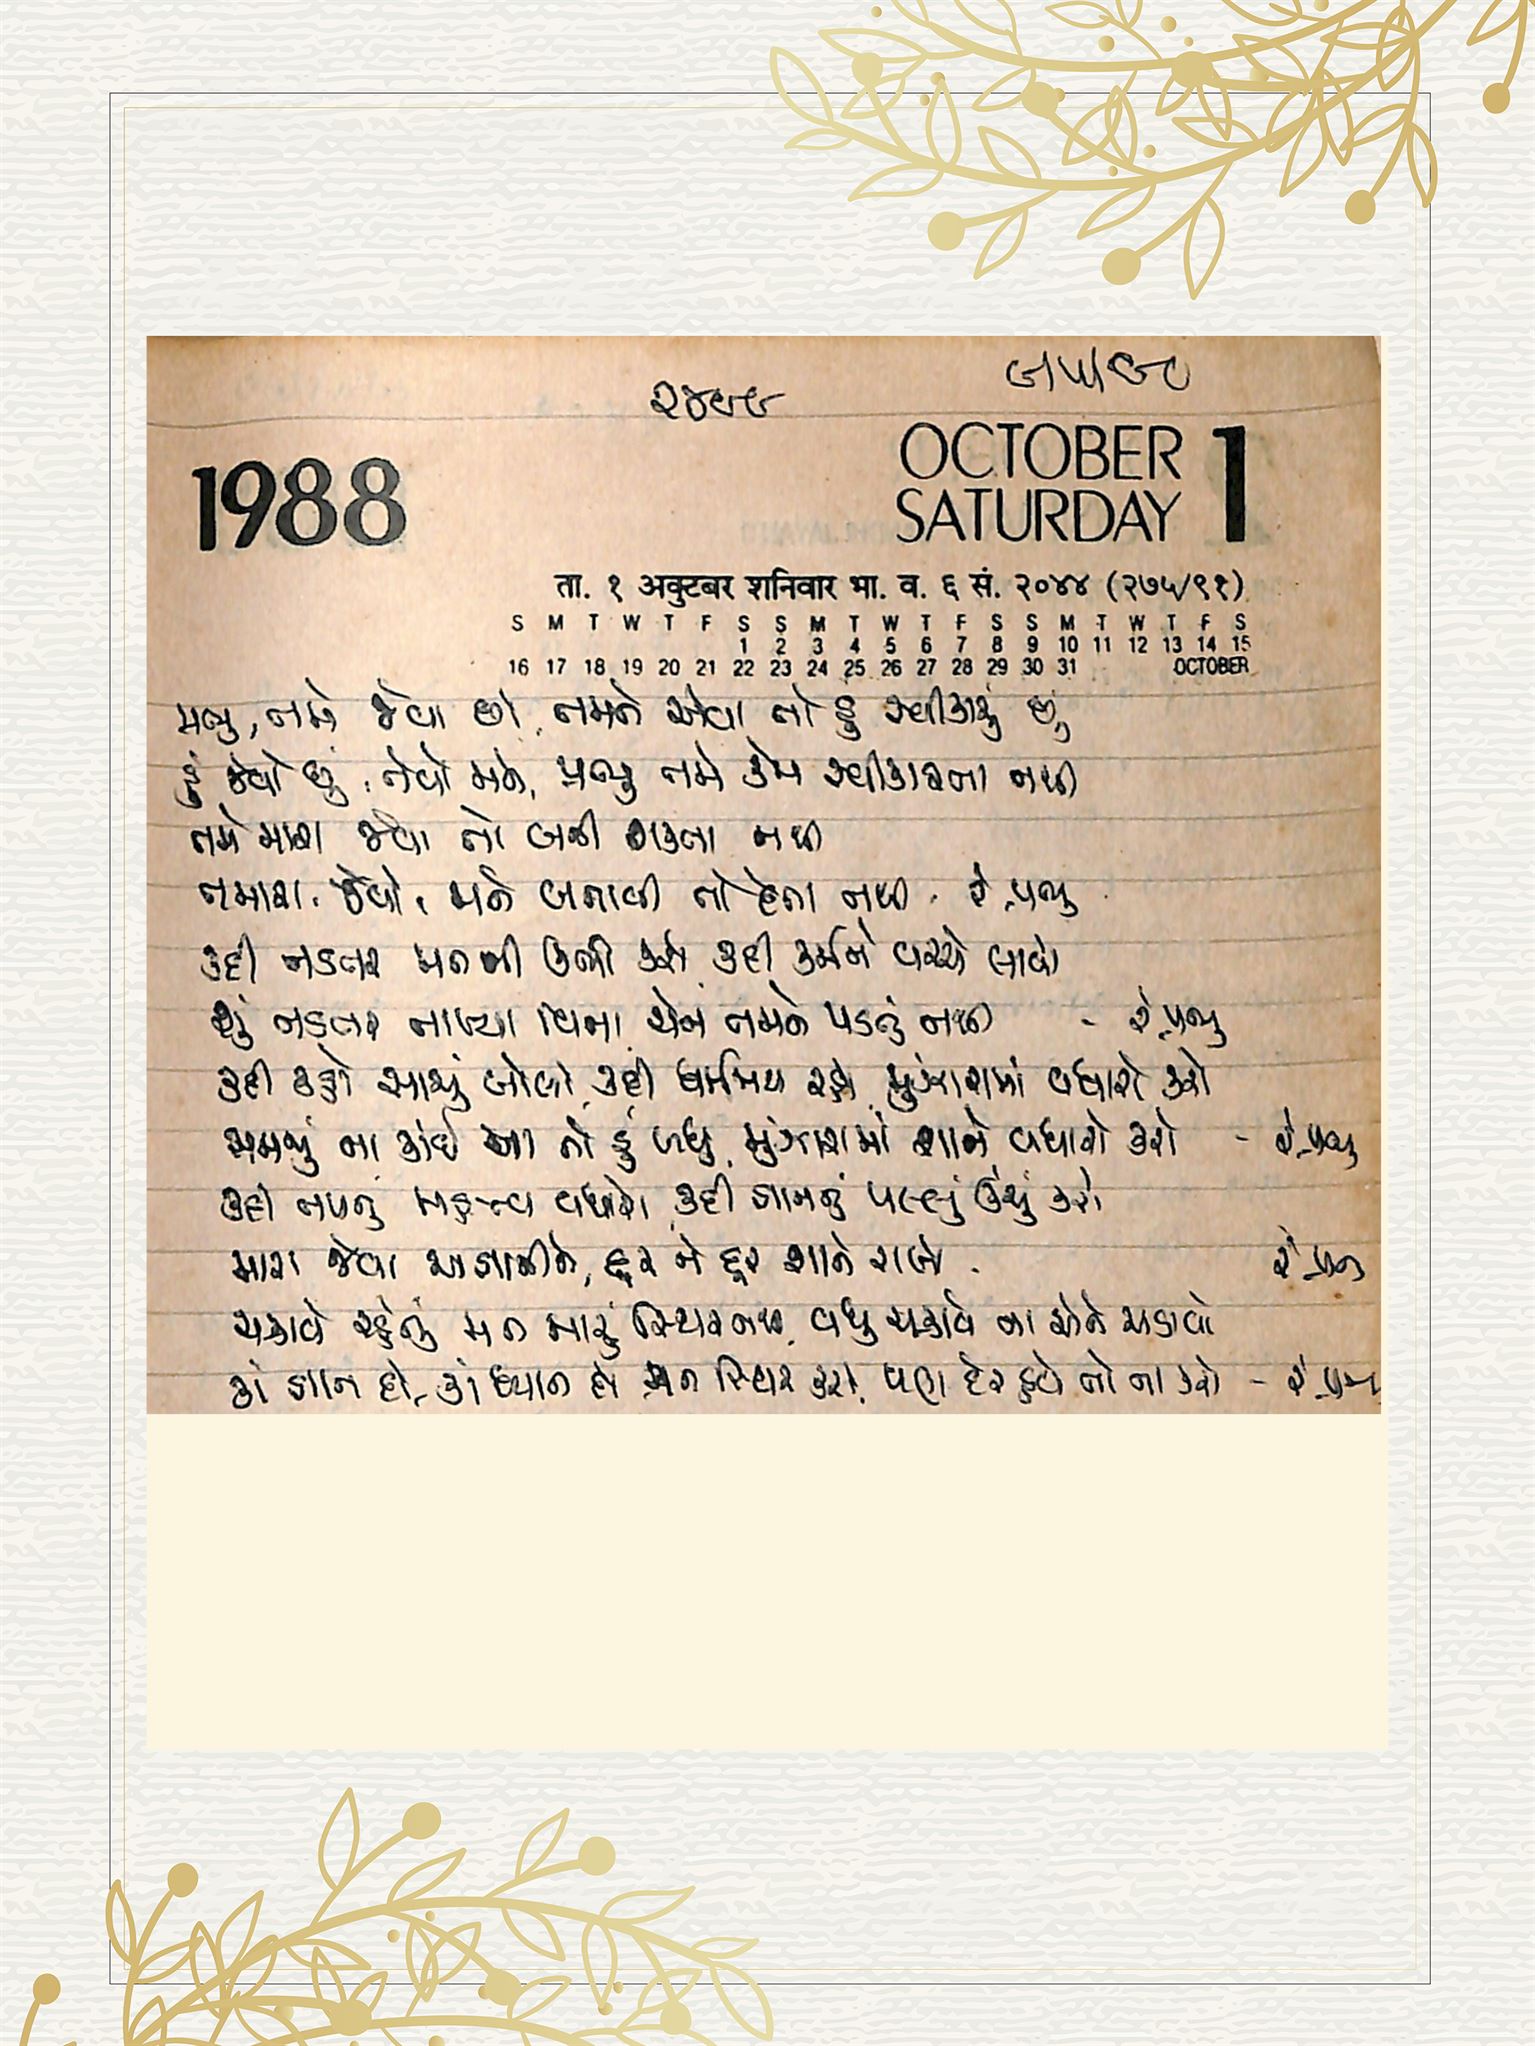 ૭/૫/૯૦
૨૪૯૯
1988
OCTOBER
SATURDAY 1
ता. १ अक्टुबर शनिवार भा. व. ६ सं. २०४४ (२७५/९१)
S M T W T F S S M T W T F S S M T W T F S
1 2 3 4 5 6 7 8 9 10 11 12 13 14 15
16 17 18 19 20 21 22 23 24 25 26 27 28 29 30 31 OCTOBER
પ્રભુ, તમે જેવા છો, તમને એવા તો હું સ્વીકારું છું
હું જેવો છું, તેવો મને, પ્રભુ તમે કેમ સ્વીકારતા નથી
તમે મારા જેવા તો બની શકતા નથી
તમારા જેવો, મને બનાવી તો દેતા નથી. રે પ્રભુ
કદી નડતર મનની ઊભી કરો કદી કર્મને વચ્ચે લાવો
શું નડતર નાખ્યા વિના ચેન તમને પડતું નથી - રે પ્રભુ
કદી કહો સાચું બોલો, કદી ધર્મમય રહો, મુંઝારામાં વધારો કરો
સમજું ના કાંઈ આ તો હું બધું, મુંઝારામાં શાને વધારો કરો - રે પ્રભુ
કદી તપનું મહત્ત્વ વધારો, કદી જ્ઞાનનું પલ્લું ઊંચું કરો
મારા જેવા અજ્ઞાનીને, દૂર ને દૂર શાને રાખો. રે પ્રભુ
ચકાવે રહેતું મન મારું સ્થિર નથી, વધુ ચકાવે ના એને ચડાવો
કાં જ્ઞાન દો, કાં ધ્યાન દો, મન સ્થિર કરો, પણ દેર હવે તો ના કરો - રે પ્રભુ